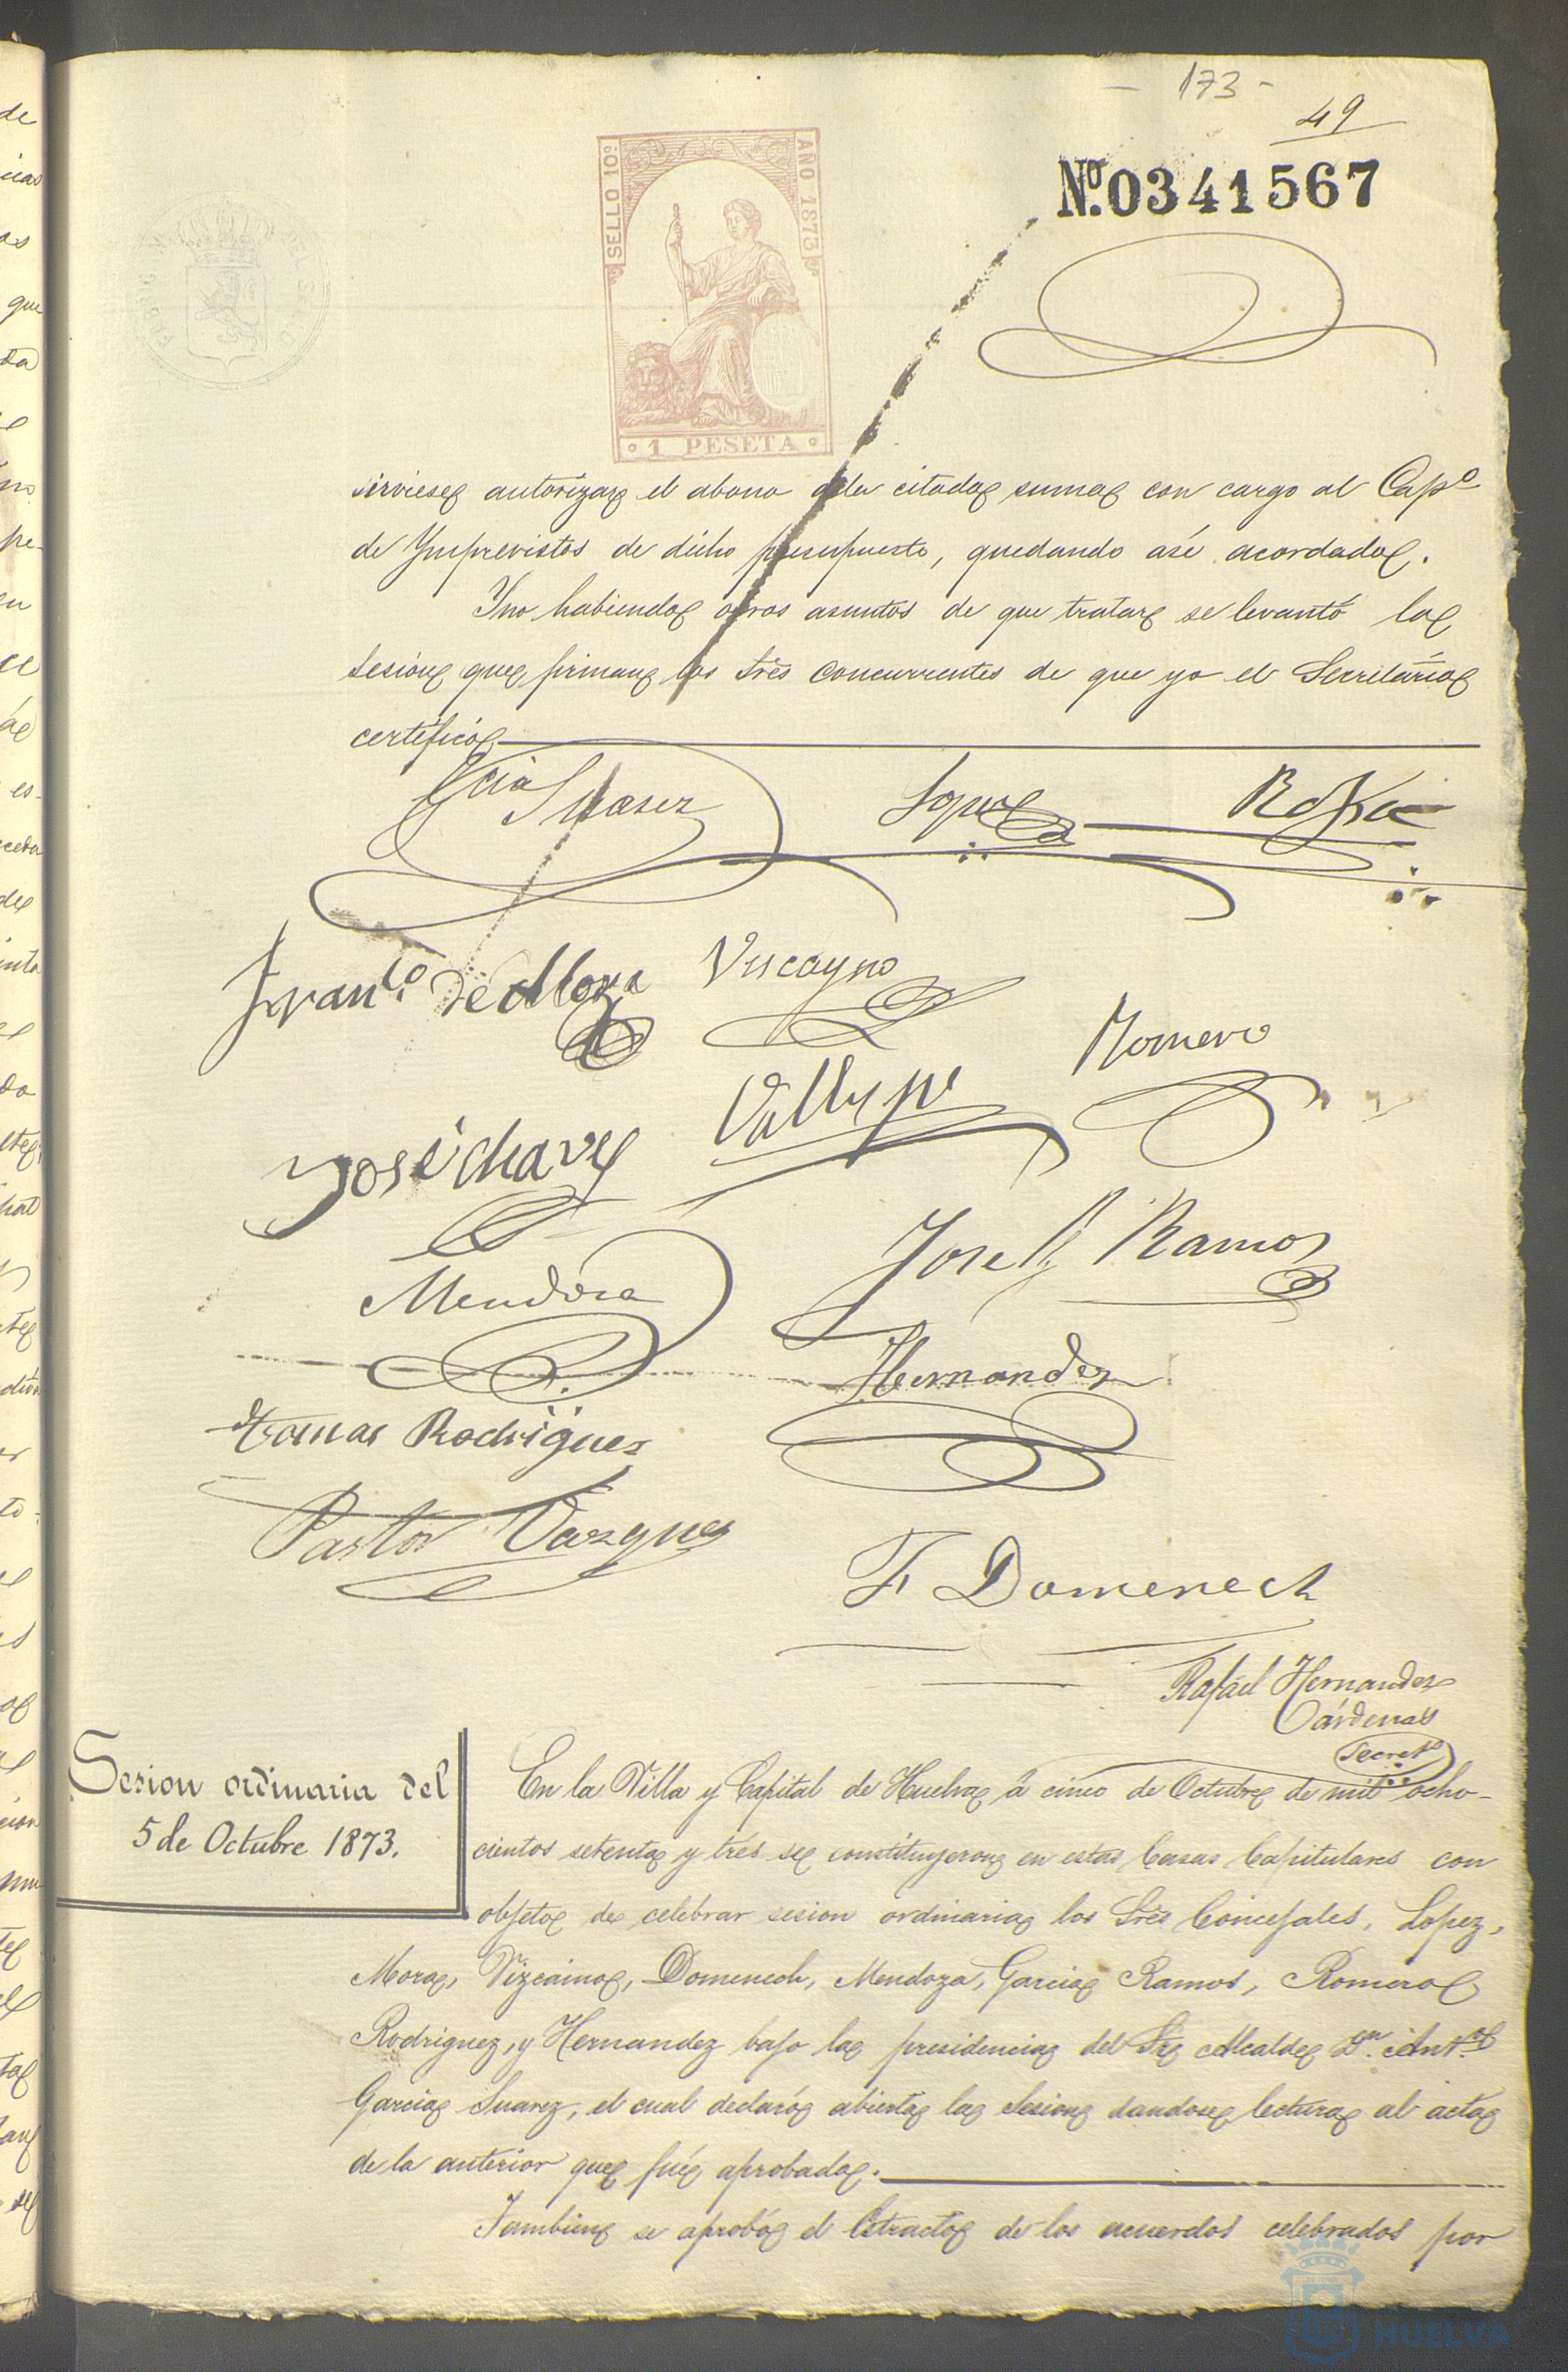 - 173 -
49
SELLO 10º
AÑO 1873
Nº. 0341567
1 PESETA
sirviese autorizar el abono de la citada suma con cargo al Capº
de Ymprevistos de dicho presupuesto, quedando asi acordado.
Y no habiendo otros asuntos de que tratar se levantó la
sesion que firman los Sres concurrentes de que yo el Secretario
certifico
Gcia Suarez
Lopez
Franco. de Mora
Viscayno
Romero
José chave
Vallejo
Mendoza
Jose G Ramos
Hernandez
Tomas Rodriguez
Pastor Vazquez
F. Domenech
Rafael Hernandez
Cárdenas
Secretº
Sesion ordinaria del
5 de Octubre 1873.
En la Villa y Capital de Huelva á cinco de Octubre de mil ocho-
cientos setenta y tres se constituyeron en estas Casas Capitulares con
objeto de celebrar sesion ordinaria los Sres Concejales, Lopez,
Mora, Vizcaino, Domenech, Mendoza, Garcia Ramos, Romero
Rodriguez, y Hernandez bajo la presidencia del Sr Alcalde Dn. Antº
Garcia Suarez, el cual declaró abierta la Sesion dandose lectura al acta
de la anterior que fué aprobada.
Tambien se aprobó el Estracto de los acuerdos celebrados por
HUELVA